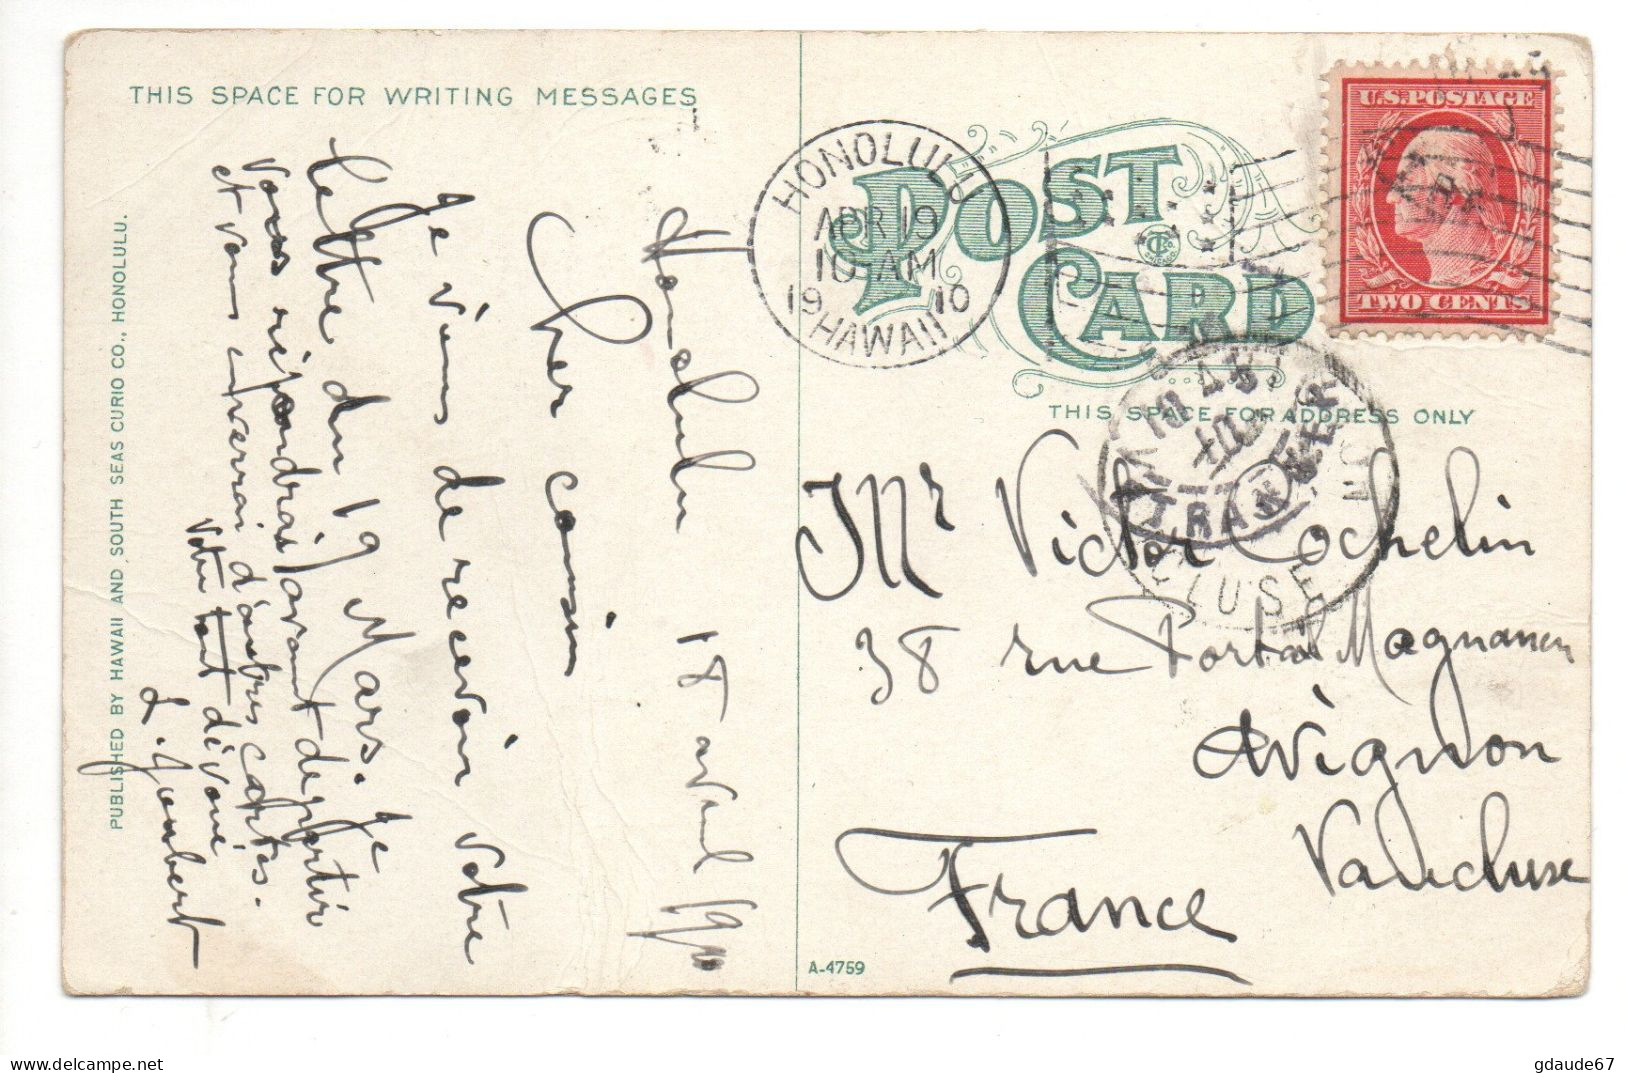 THIS SPACE FOR WRITING MESSAGES
Honolulu 18 avril 1910
Cher cousin
Je viens de recevoir votre
lettre du 19 Mars. Je
vous répondrais avant de partir
et vous enverrai d'autres cartes.
Votre tout dévoué
PUBLISHED BY HAWAII AND SOUTH SEAS CURIO CO., HONOLULU.
HONOLULU
APR 19
10-AM
1910
HAWAII
POST CARD
U.S. POSTAGE
TWO CENTS
THIS SPACE FOR ADDRESS ONLY
ETRANGER
VAUCLUSE
Mr Victor Cochelin
38 rue Portail Magnanen
Avignon
Vaucluse
France
A-4759
gdaude67